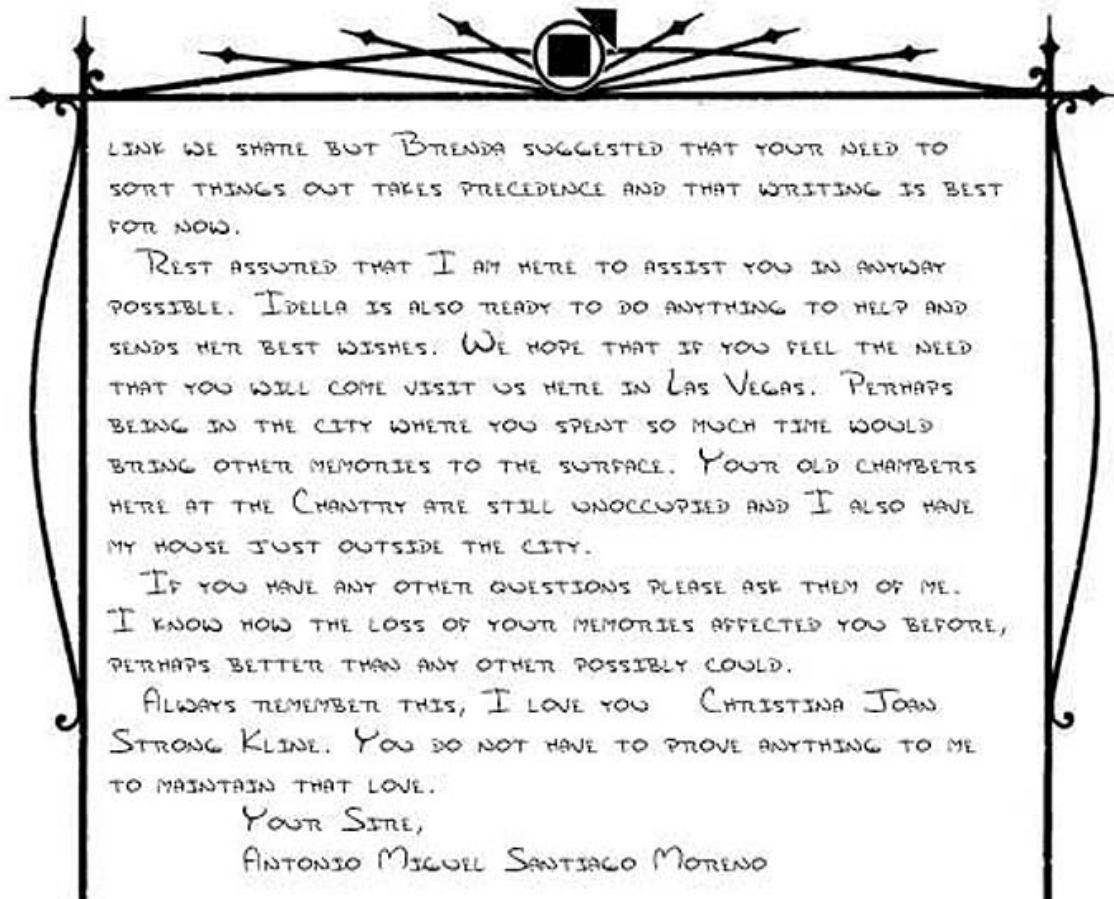 link we share but Brenda suggested that your need to
sort things out takes precedence and that writing is best
for now.
Rest assured that I am here to assist you in anyway
possible. Idella is also ready to do anything to help and
sends her best wishes. We hope that if you feel the need
that you will come visit us here in Las Vegas. Perhaps
being in the city where you spent so much time would
bring other memories to the surface. Your old chambers
here at the Chantry are still unoccupied and I also have
my house just outside the city.
If you have any other questions please ask them of me.
I know how the loss of your memories affected you before,
perhaps better than any other possibly could.
Always remember this, I love you Christina Joan
Strong Kline. You do not have to prove anything to me
to maintain that love.
Your Sire,
Antonio Miguel Santiago Moreno